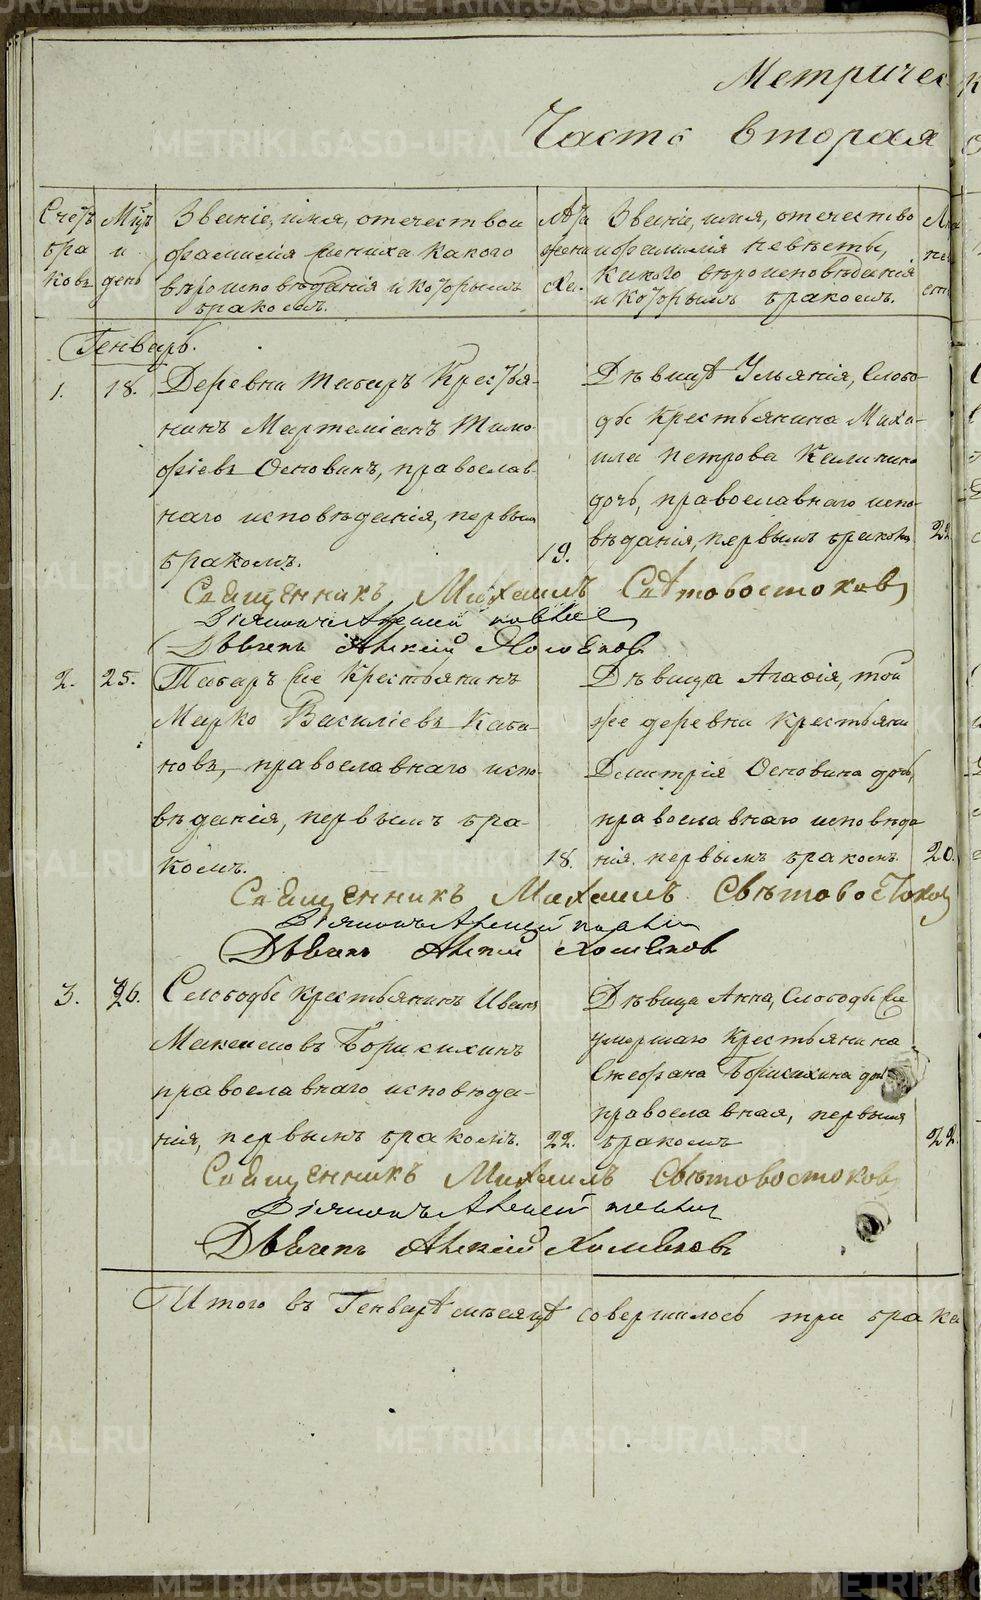 Метричес
Часть вторая
Счетъ бра ковъ
Мцъ и день
Званіе, имя, отечество и фамилія жениха какого вѣроисповѣданія и которымъ бракомъ.
Лѣта жени ха.
Званіе, имя, отечество и фамилія невѣсты, какого вѣроисповѣданія и которымъ бракомъ.
Генварь.
1. 18. Деревни Табаръ Кресть-
янинъ Мартеміанъ Тимо-
фіевъ Осковинъ, православ-
наго исповѣданія, первымъ
бракомъ. 19.
Дѣвица Ульянія, Слобо-
ды Крестьянина Миха-
ила Петрова Калинина
дочь, православнаго испо-
вѣданія, первымъ бракомъ 22
Священникъ Михаилъ Свѣтовостоковъ
Діяконъ Алексей
Дьячекъ Алексій Хомяковъ
2. 25. Табаръ Крестьянинъ
Марко Василіевъ Каба-
новъ, православнаго испо-
вѣданія, первымъ бра-
комъ. 18.
Дѣвица Агафія, той
же деревни Крестьяни
Дмитрія Осковина дочь,
православнаго исповѣда
нія первымъ бракомъ. 20.
Священникъ Михаилъ Свѣтовостоковъ
Діяконъ Алексей
Дьячекъ Алексій Хомяковъ
3. 26. Слободы Крестьянинъ Иванъ
Максимовъ Борисихинъ
православнаго исповѣда-
нія, первымъ бракомъ. 22.
Дѣвица Анна, Слободы
умершаго Крестьянина
Стефана Борисихина дочь
православная, первымъ
бракомъ 22.
Священникъ Михаилъ Свѣтовостоковъ
Діяконъ Алексей
Дьячекъ Алексій Хомяковъ
Итого въ Генварѣ мѣсяцѣ совершилось три брака
METRIKI.GASO-URAL.RU